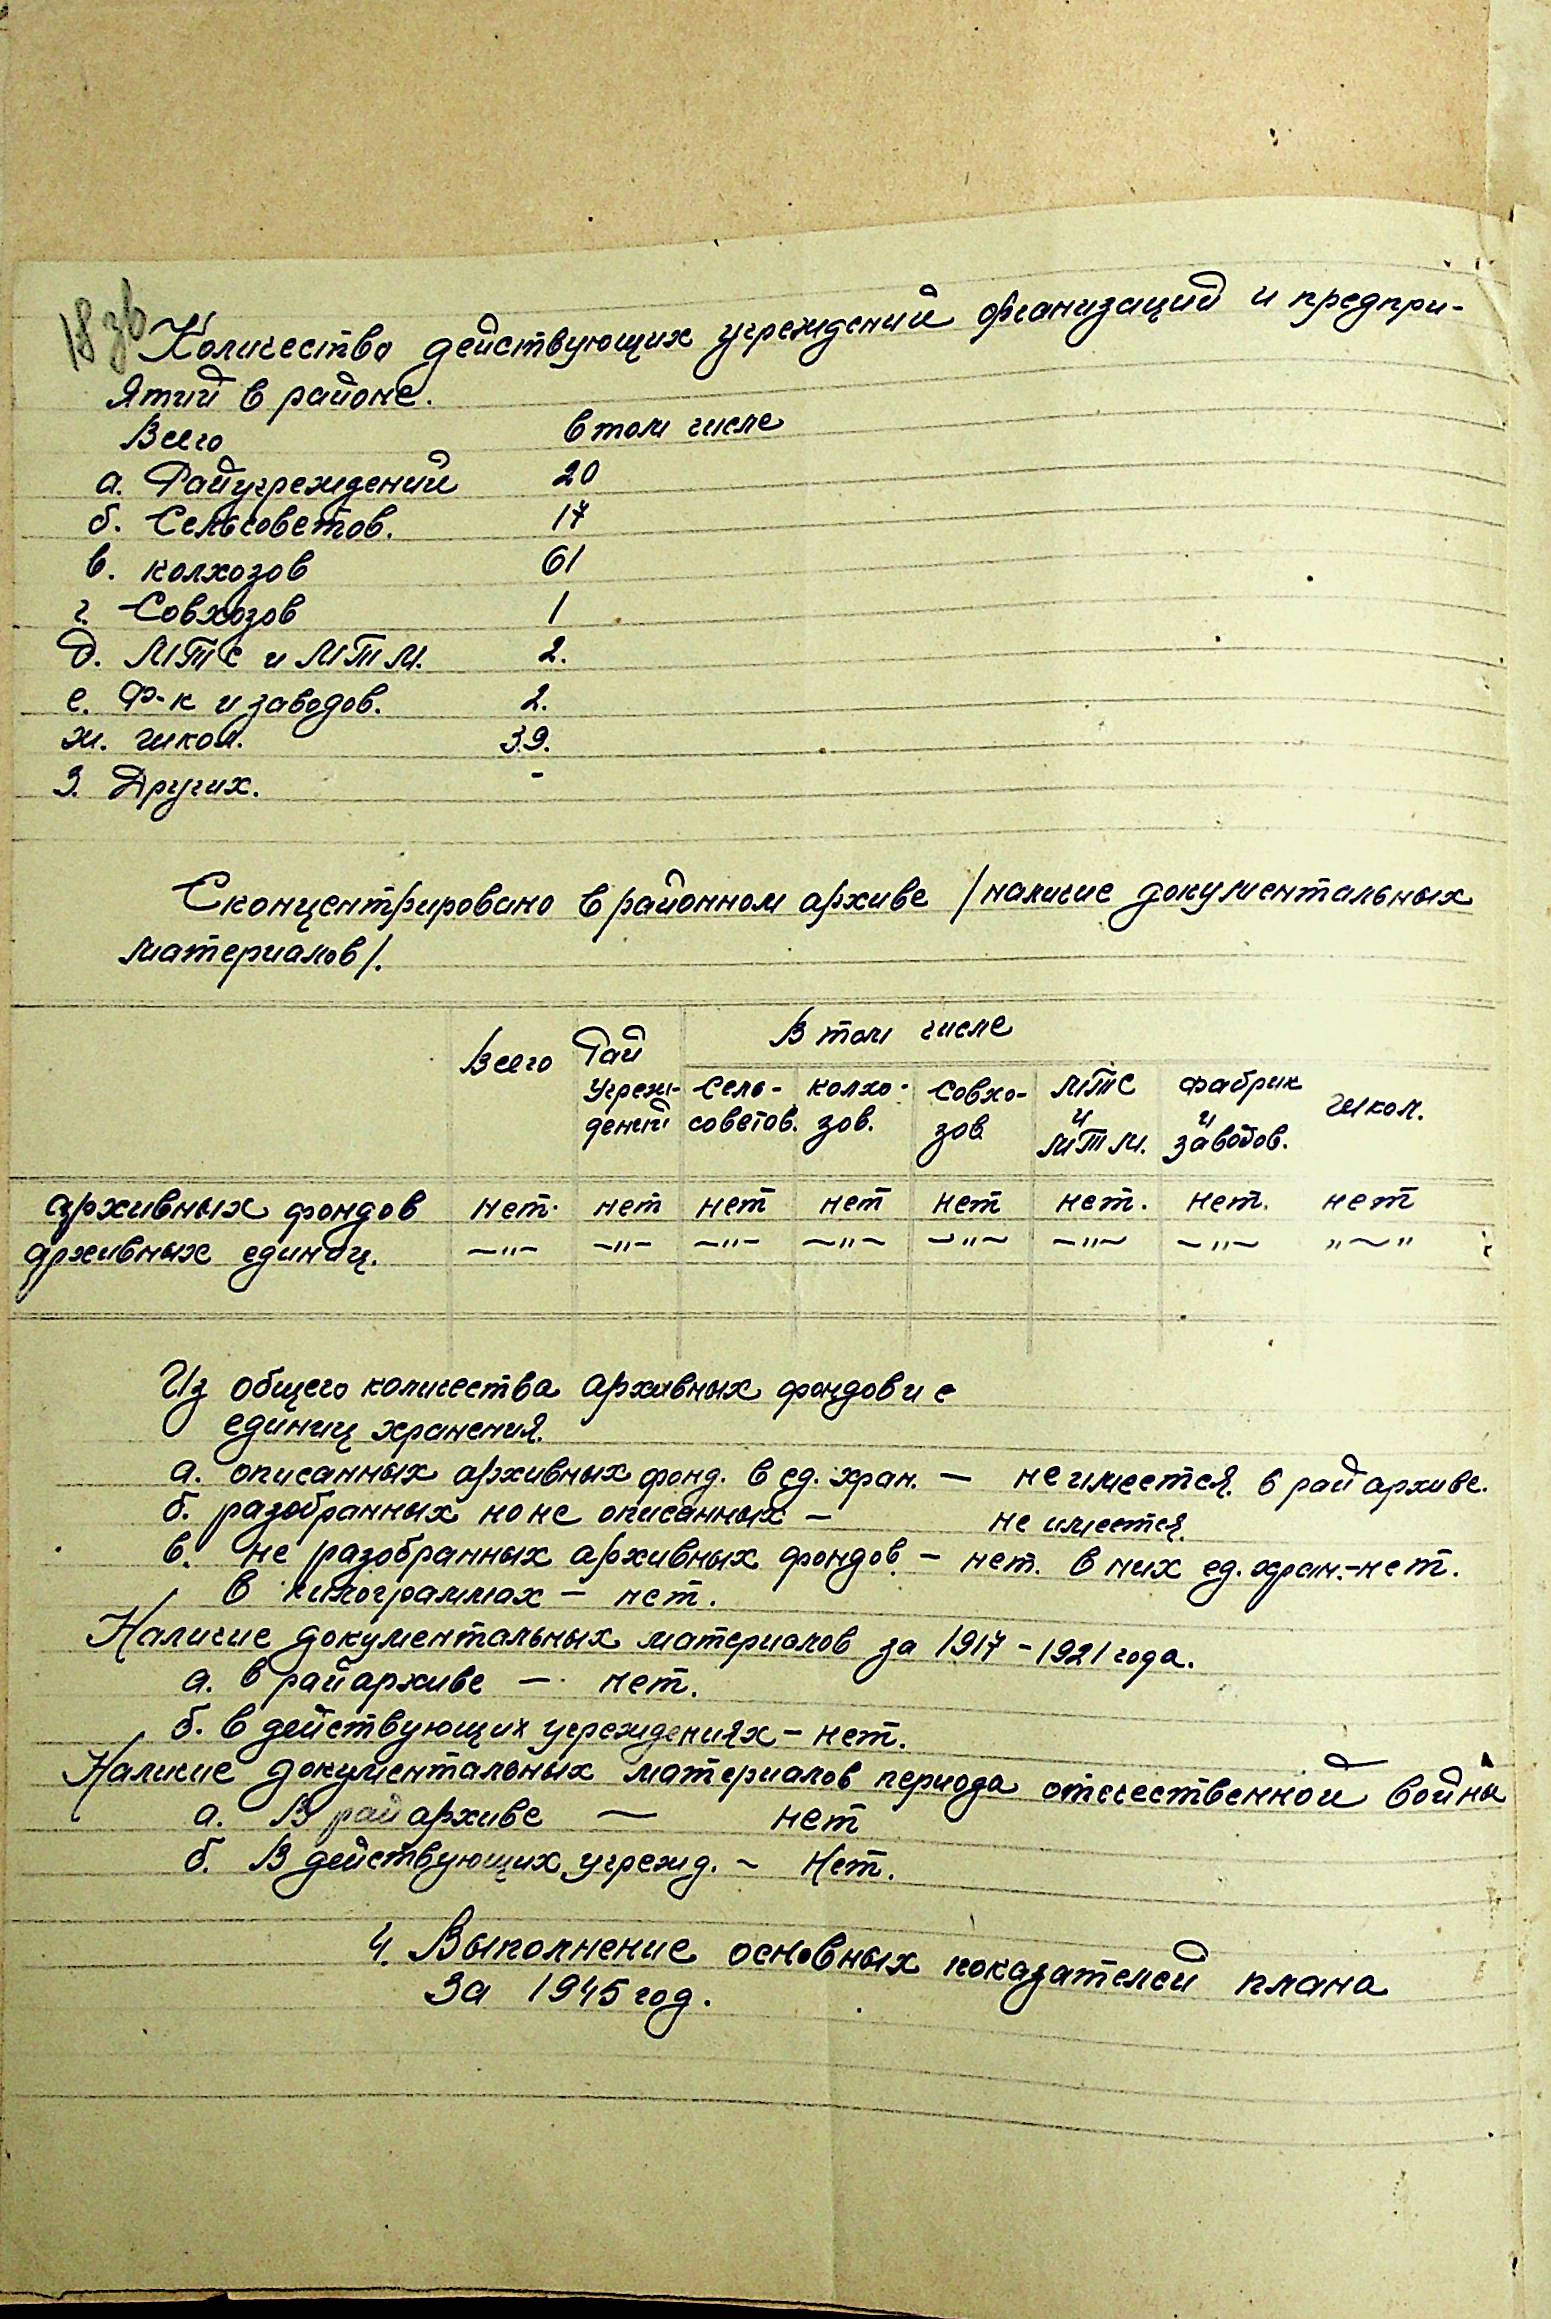 18 зв
Количество действующих учреждений организаций и предпри-
ятий в районе.
Всего в том числе
а. Райучреждений 20
б. Сельсоветов. 17
в. колхозов 61
г. Совхозов 1
д. МТС и МТМ. 2.
е. Ф-к и заводов. 2.
ж. школ. 39.
з. Других. -
Сконцентрировано в районном архиве /наличие документальных
материалов/.
В том числе
Всего Рай
учреж-
дений
сель-
советов.
колхо-
зов.
совхо-
зов
МТС
и
МТМ.
фабрик
и
заводов.
школ.
архивных фондов нет. нет нет нет нет нет. нет. нет
архивных единиц. —"— —"— —"— —"— —"— —"— —"— "—"
Из общего количества архивных фондов и е
единиц хранения.
а. описанных архивных фонд. в ед. хран. — не имеется в райархиве.
б. разобранных но не описанных — не имеется.
в. не разобранных архивных фондов. — нет. в них ед. хран.-нет.
в килограммах — нет.
Наличие документальных материалов за 1917-1921 года.
а. в райархиве — нет.
б. в действующих учреждениях - нет.
Наличие документальных материалов периода отечественной войны
а. В райархиве — нет
б. В действующих учрежд. - Нет.
4. Выполнение основных показателей плана
за 1945 год.